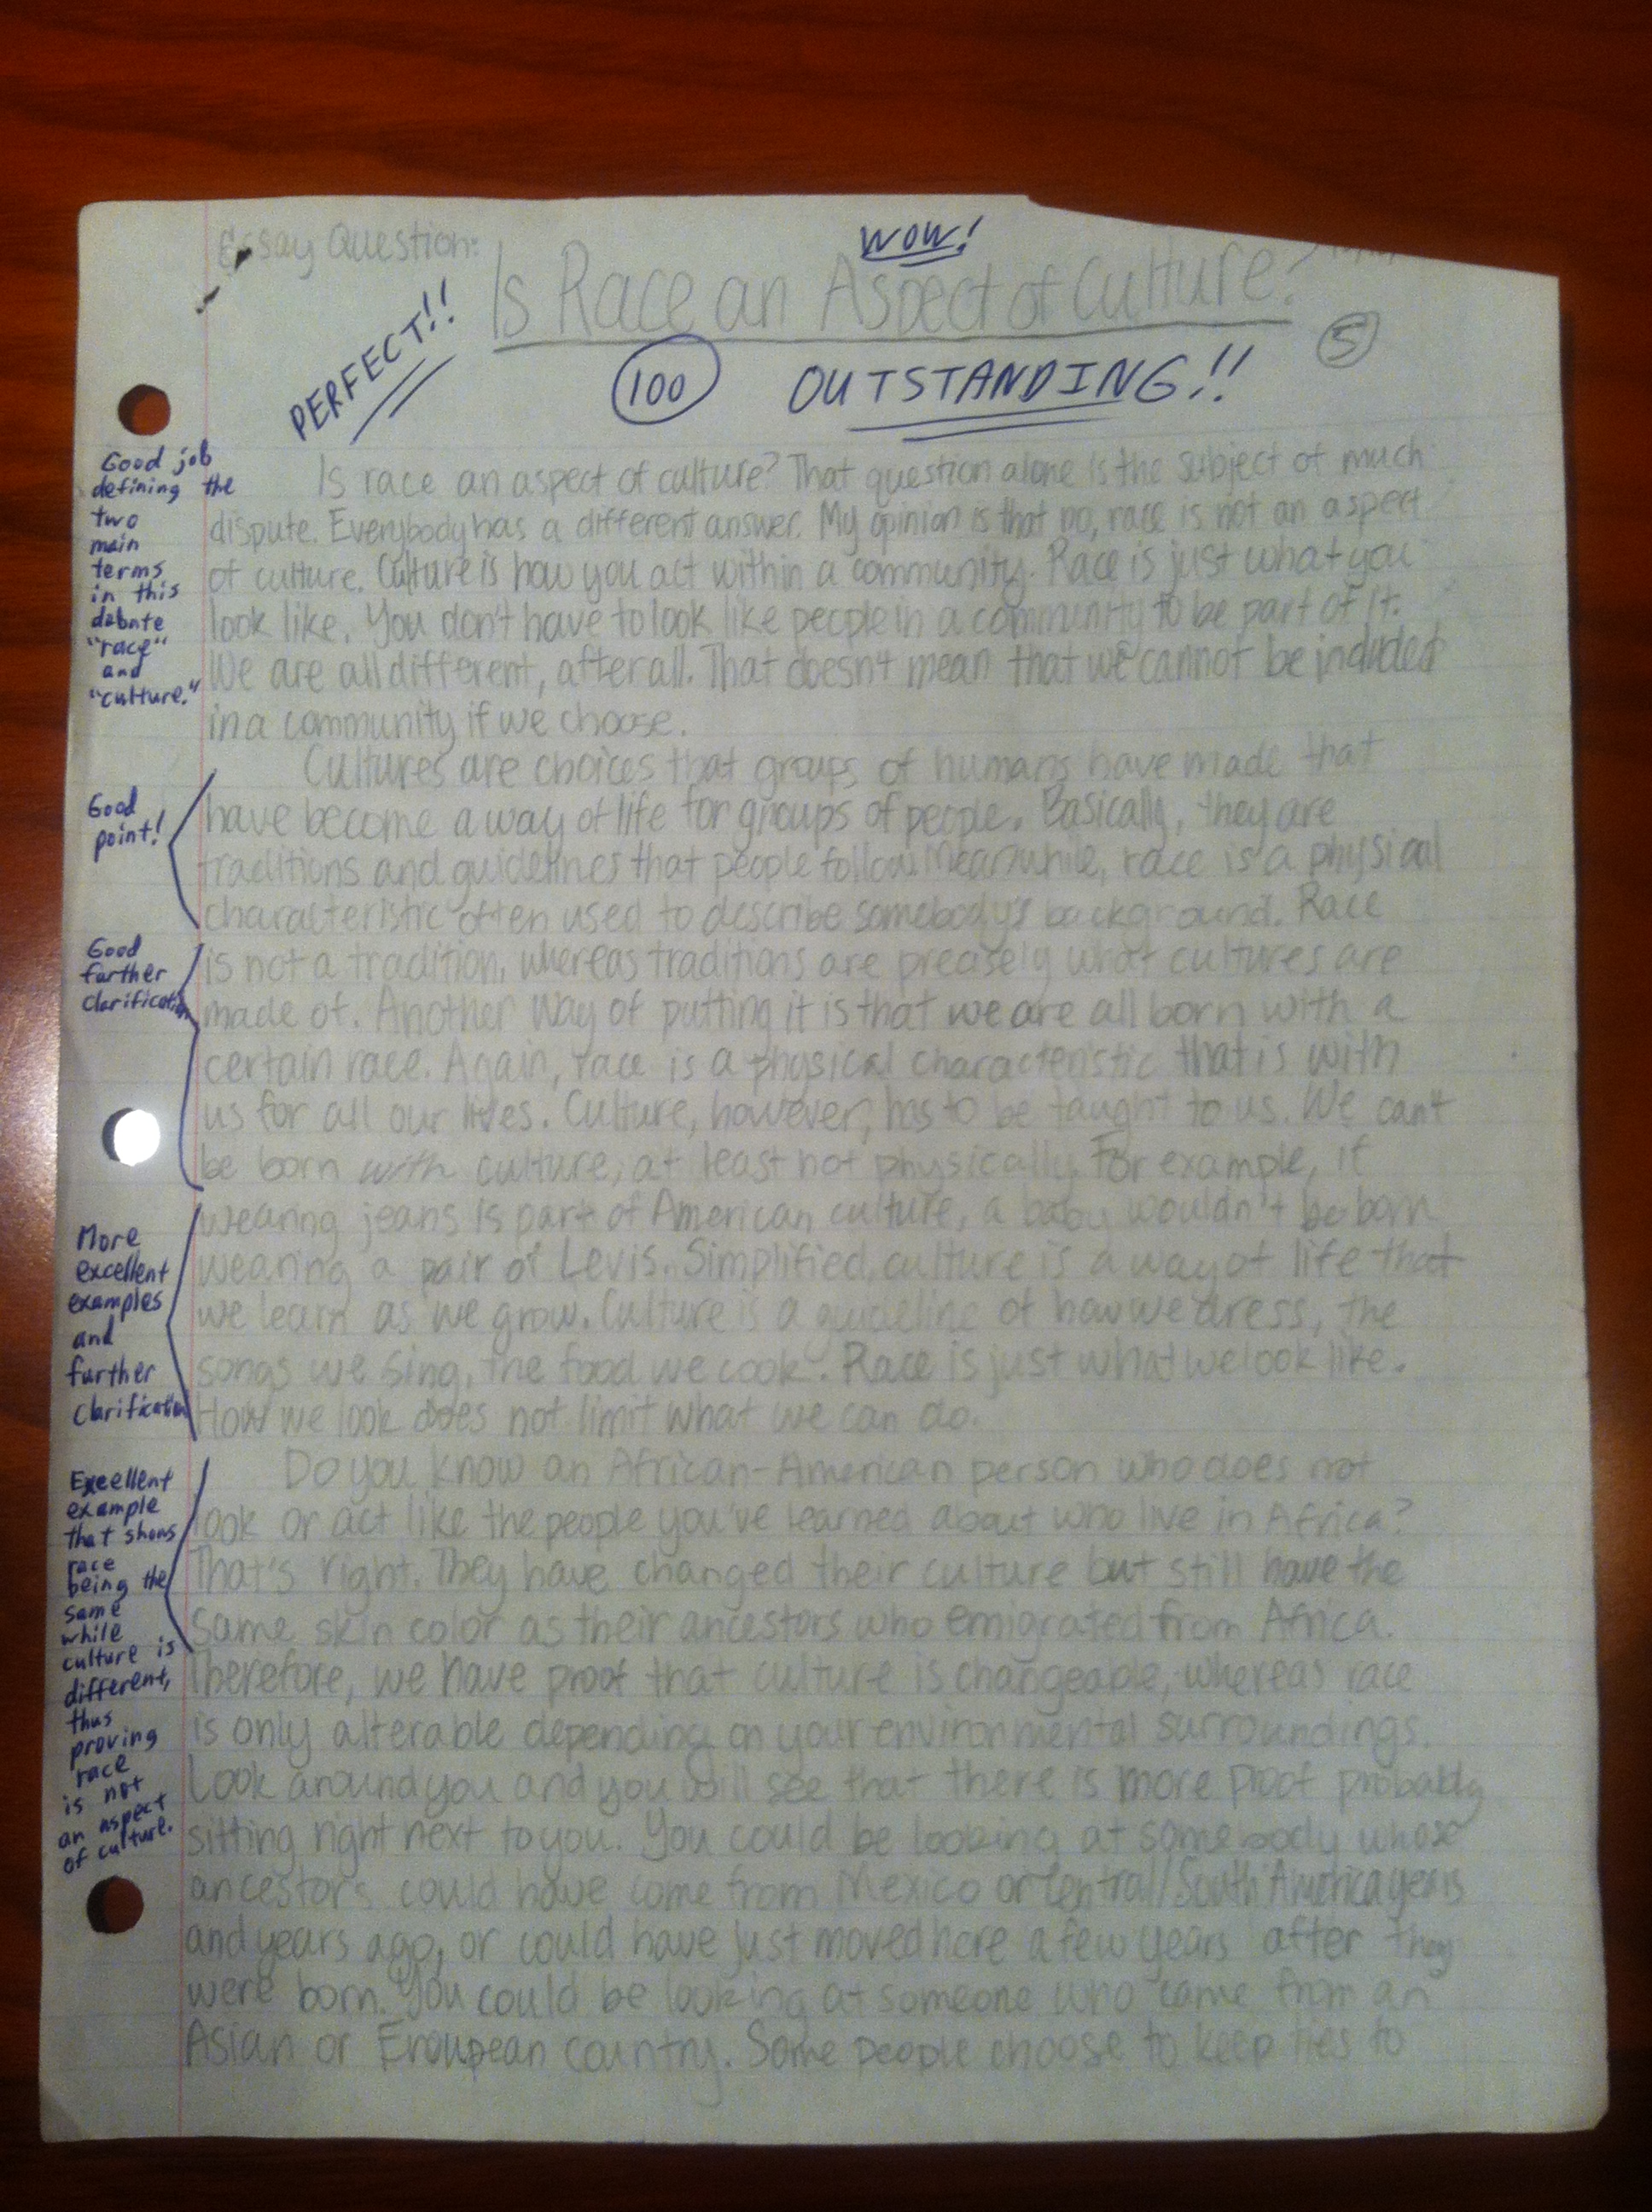 Essay Question:
WOW!
Is Race an Aspect of Culture?
PERFECT!!
100
OUTSTANDING!!
5
Good job
defining the
two
main
terms
in this
debate
"race"
and
"culture."
Is race an aspect of culture? That question alone is the subject of much
dispute. Everybody has a different answer. My opinion is that no, race is not an aspect
of culture. Culture is how you act within a community. Race is just what you
look like. You don't have to look like people in a community to be part of it.
We are all different, after all. That doesn't mean that we cannot be included
in a community if we choose.
Good
point!
Cultures are choices that groups of humans have made that
have become a way of life for groups of people. Basically, they are
traditions and guidelines that people follow. Meanwhile, race is a physical
characteristic often used to describe somebody's background. Race
Good
further
clarification
is not a tradition, whereas traditions are precisely what cultures are
made of. Another way of putting it is that we are all born with a
certain race. Again, race is a physical characteristic that is with
us for all our lives. Culture, however, has to be taught to us. We can't
be born with culture, at least not physically. For example, if
More
excellent
examples
and
further
clarification
wearing jeans is part of American culture, a baby wouldn't be born
wearing a pair of Levis. Simplified, culture is a way of life that
we learn as we grow. Culture is a guideline of how we dress, the
songs we sing, the food we cook. Race is just what we look like.
How we look does not limit what we can do.
Excellent
example
that shows
race
being the
same
while
culture is
different,
thus
proving
race
is not
an aspect
of culture.
Do you know an African-American person who does not
look or act like the people you've learned about who live in Africa?
That's right. They have changed their culture but still have the
same skin color as their ancestors who emigrated from Africa.
Therefore, we have proof that culture is changeable, whereas race
is only alterable depending on your environmental surroundings.
Look around you and you will see that there is more proof probably
sitting right next to you. You could be looking at somebody whose
ancestors could have come from Mexico or Central/South America years
and years ago, or could have just moved here a few years after they
were born. You could be looking at someone who came from an
Asian or Eroupean country. Some people choose to keep ties to